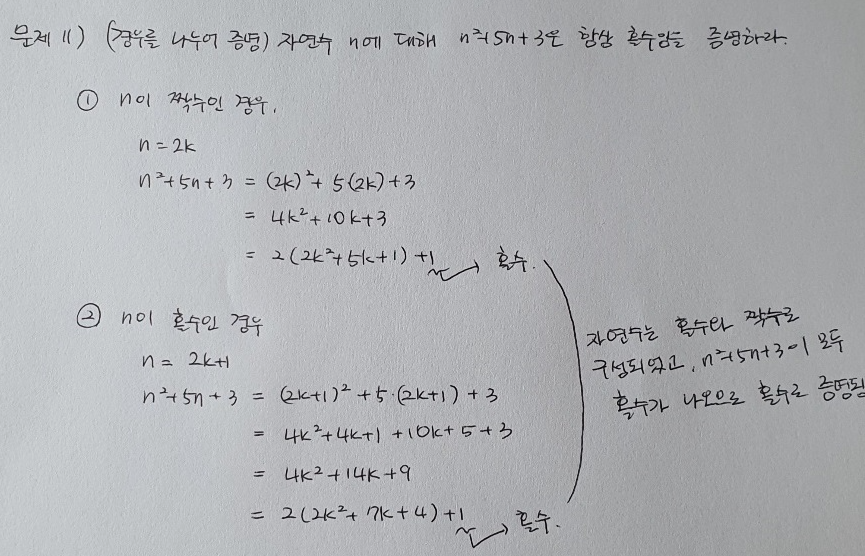 문제 11) (경우를 나누어 증명) 자연수 n에 대해 n²+5n+3은 항상 홀수임을 증명하라.
① n이 짝수인 경우.
n = 2k
n²+5n+3 = (2k)²+5(2k)+3
= 4k²+10k+3
= 2(2k²+5k+1)+1 → 홀수.
② n이 홀수인 경우
n = 2k+1
n²+5n+3 = (2k+1)²+5·(2k+1)+3
= 4k²+4k+1+10k+5+3
= 4k²+14k+9
= 2(2k²+7k+4)+1 → 홀수.
자연수는 홀수와 짝수로
구성되었고, n²+5n+3이 모두
홀수가 나오므로 홀수로 증명됨